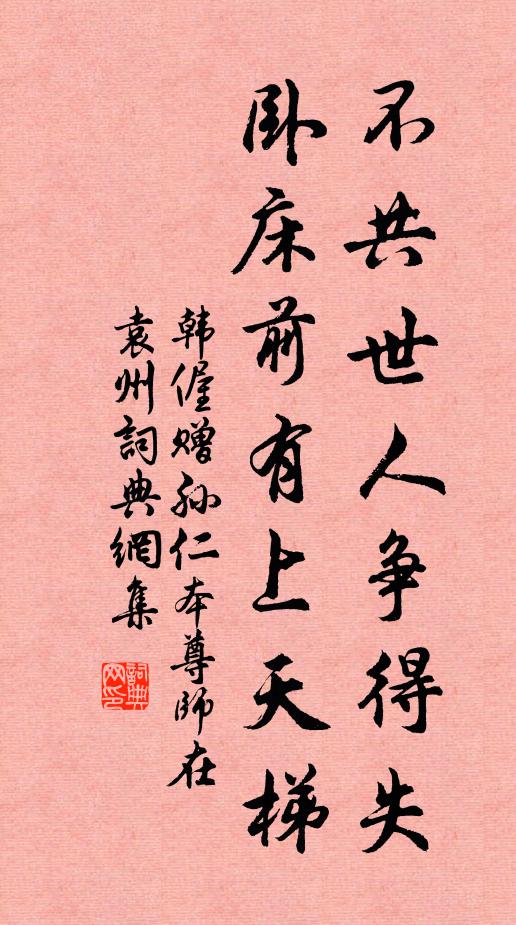 不共世人争得失
卧床前有上天梯
韩偓赠孙仁本尊师在
袁州詞典網集
詞典网印